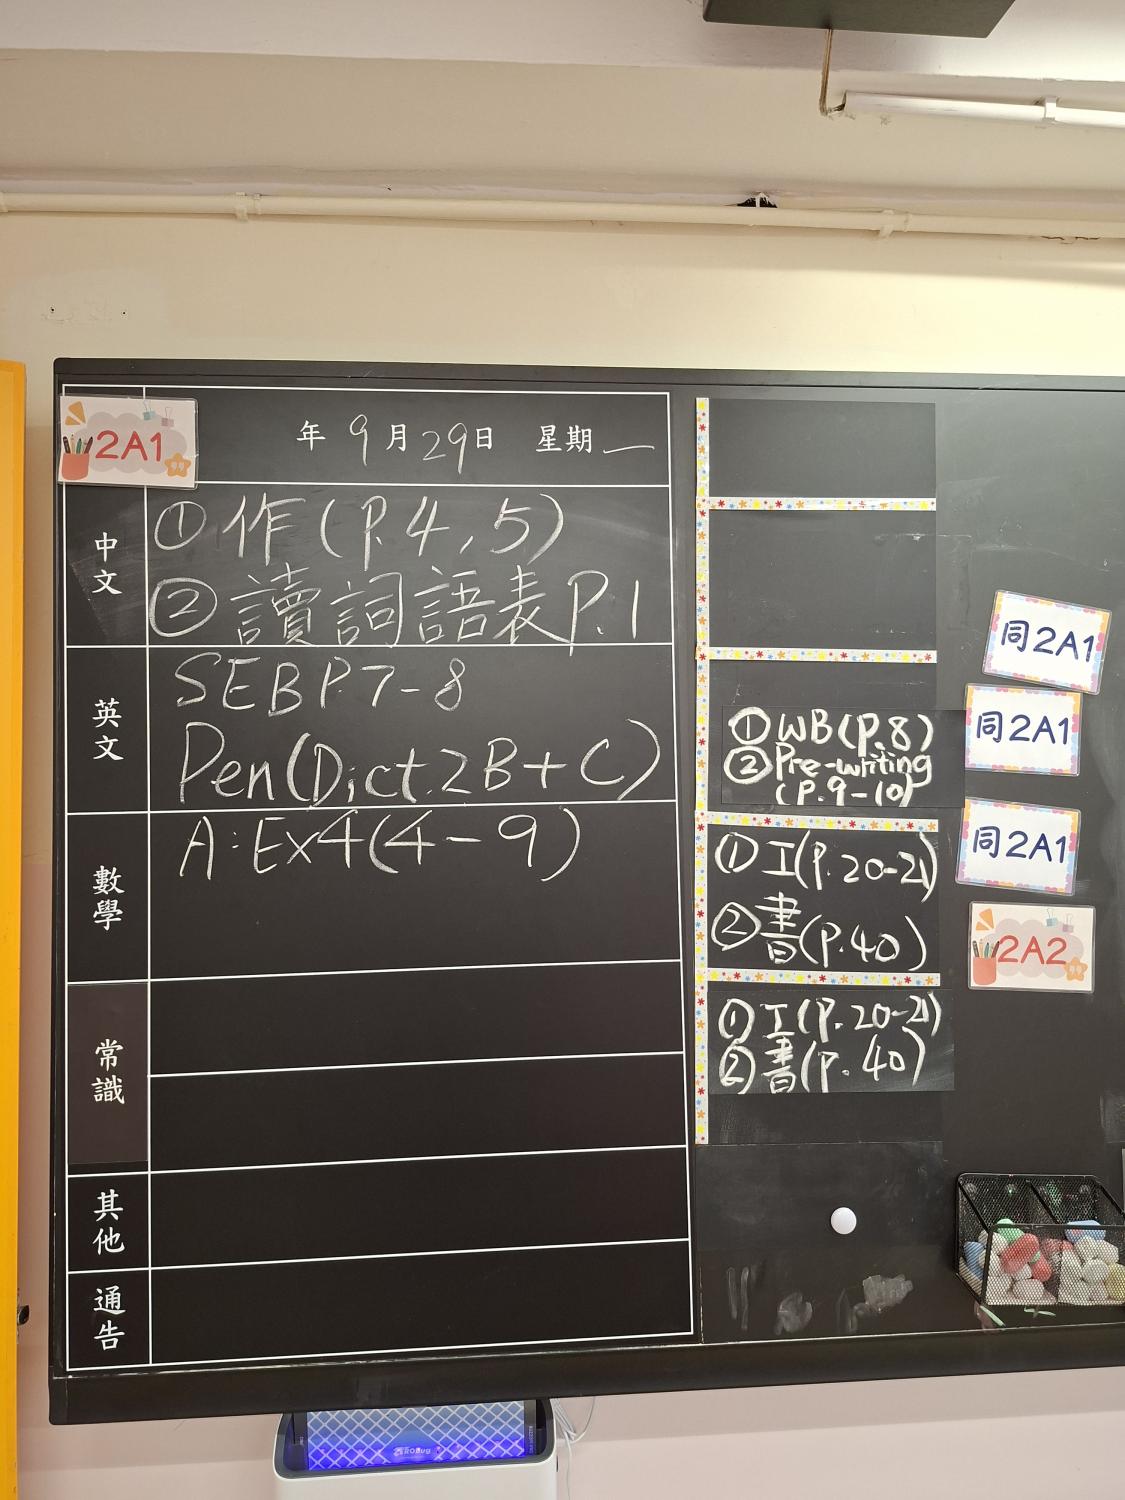 2A1
年 9月29日 星期一
中文
①作(P.4,5)
②讀詞語表P.1
英文
SEB P.7-8
Pen(Dict.2B+C)
數學
A:Ex4(4-9)
常識
其他
通告
①WB(P.8)
②Pre-writing
(P.9-10)
①工(P.20-21)
②書(P.40)
①工(P.20-21)
②書(P.40)
同2A1
同2A1
同2A1
2A2